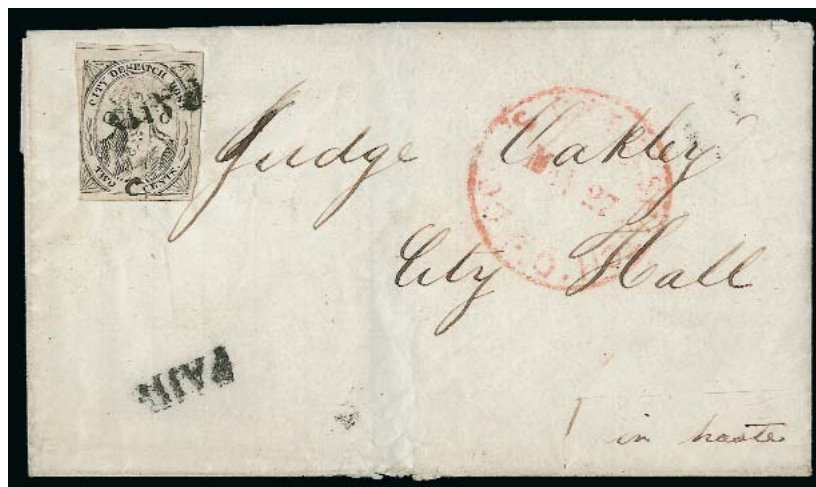 CITY DESPATCH POST
PAID
TWO CENTS
C
Judge Oakley
27
City Hall
PAID
in haste